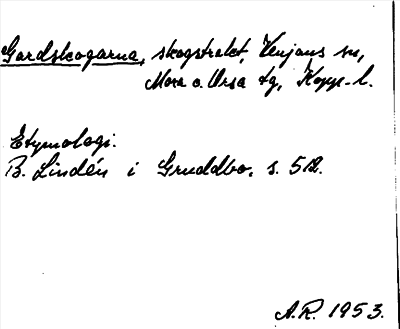 Gardskogarna, skogstrakt, Venjans sn,
Mora o. Orsa tg, Kopp. l.
Etymologi:
B. Lindén i Gruddbo, s. 512.
A.R. 1953.